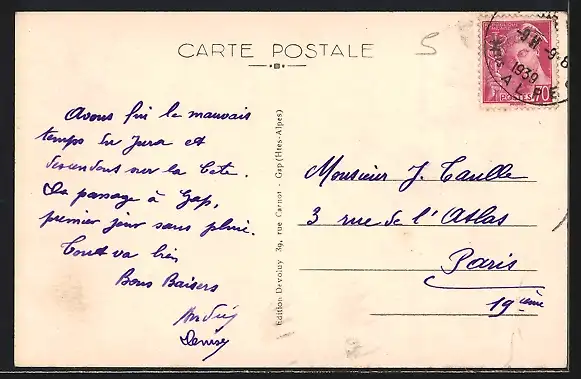 CARTE POSTALE
5
9 H 9-8
1939
ALPE
POSTES
Avons fui le mauvais
temps du Jura et
descendons sur la Côte.
De passage à Gap,
premier jour sans pluie.
Tout va bien
Bons Baisers
André
Denise
Edition Devoluy 39, rue Carnot - Gap (Htes-Alpes)
Monsieur J. Caulle
3 rue de l'Atlas
Paris
19ième